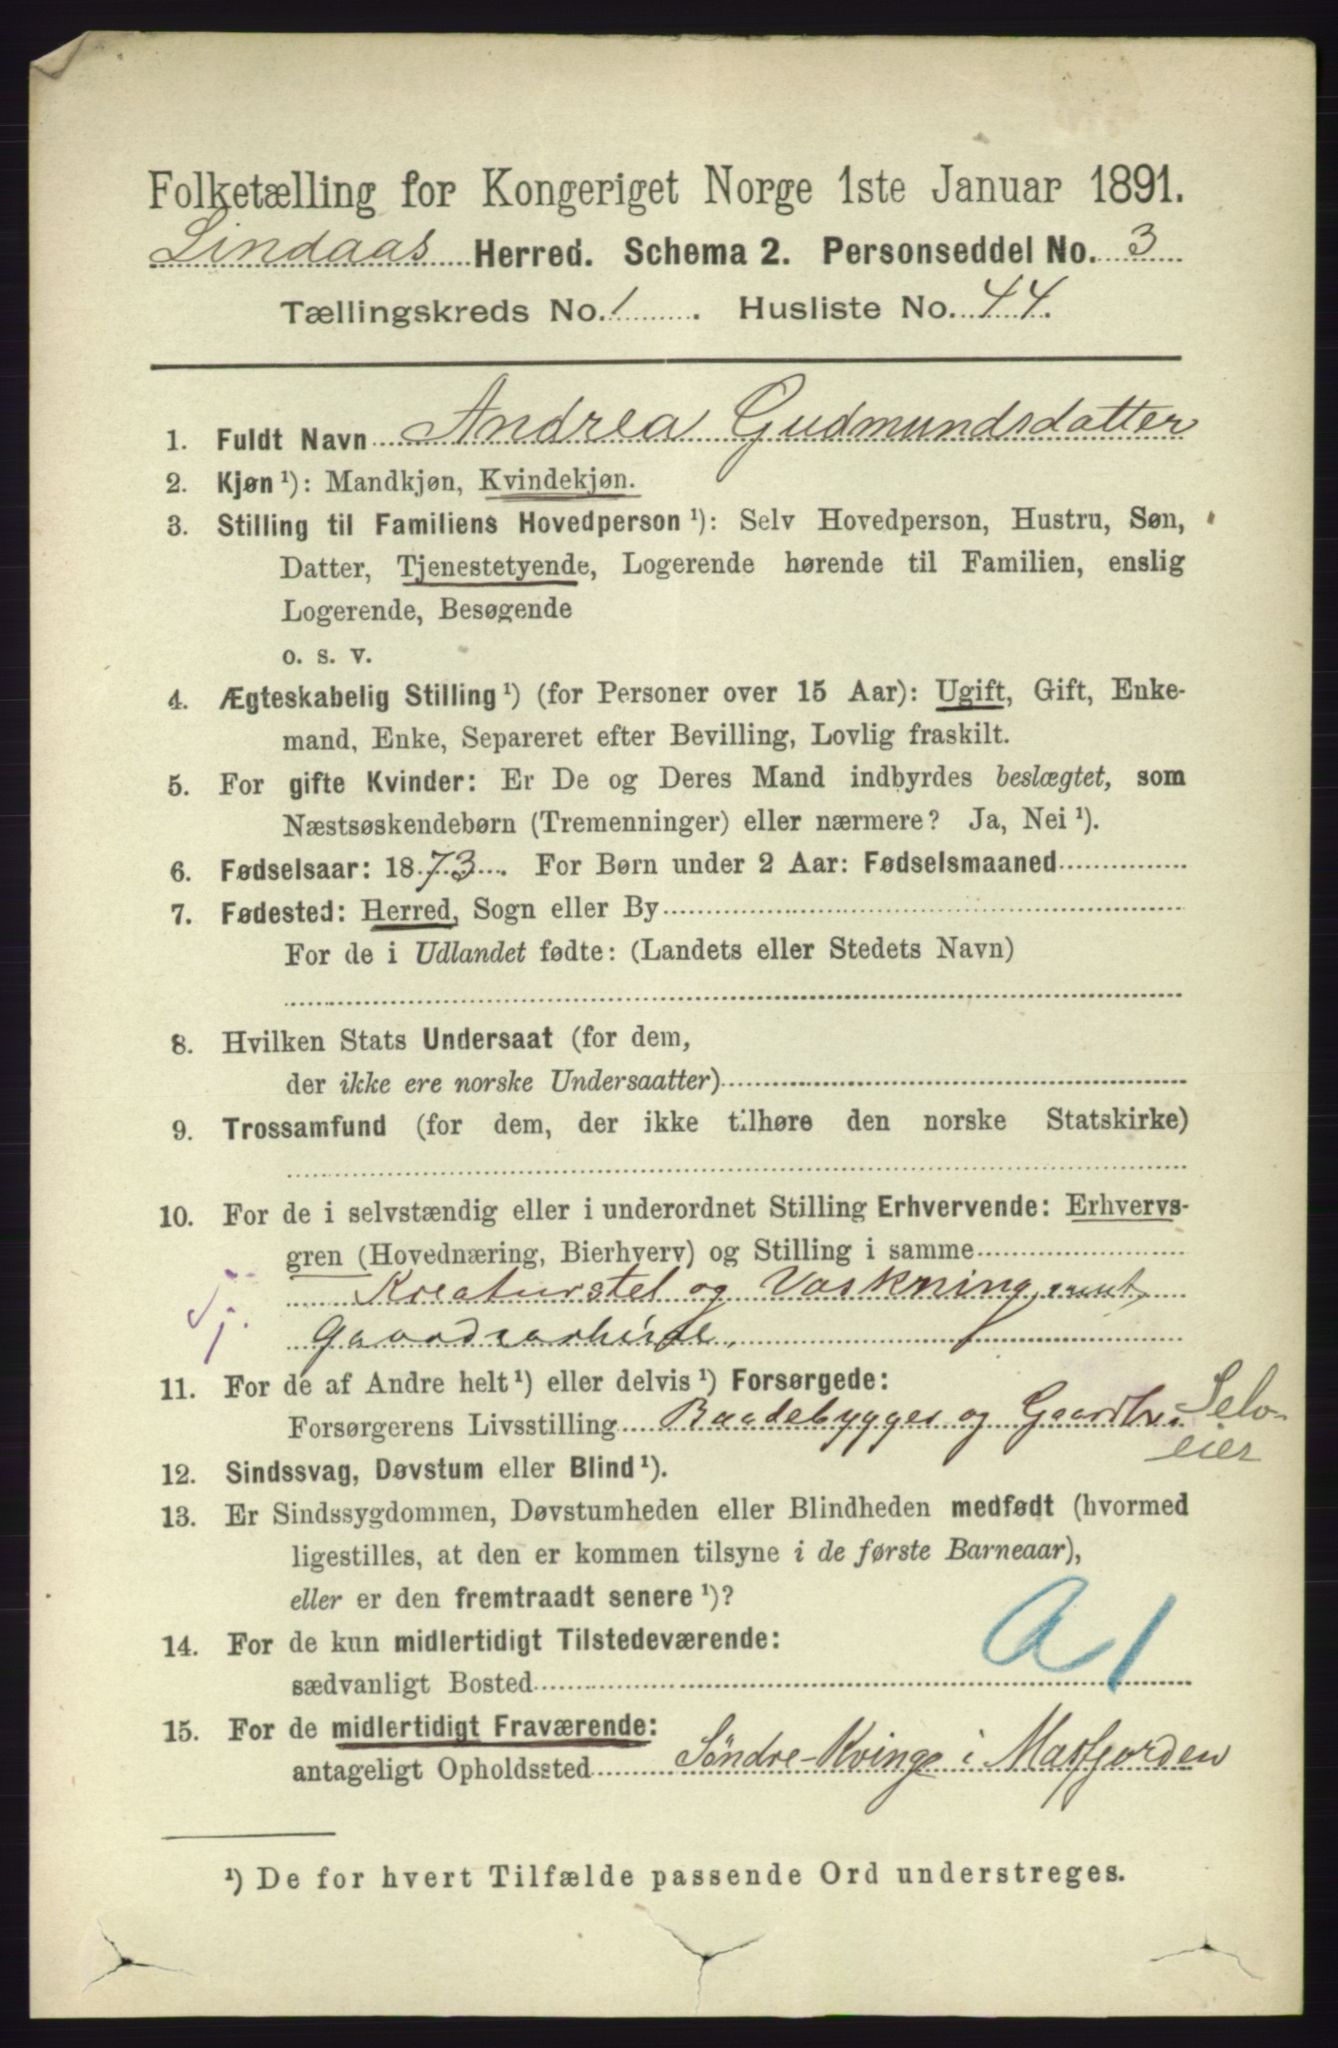 Folketælling for Kongeriget Norge 1ste Januar 1891.
Lindaas Herred. Schema 2. Personseddel No. 3
Tællingskreds No. 1. Husliste No. 44.
1. Fuldt Navn Andrea Gudmundsdatter
2. Kjøn ¹): Mandkjøn, Kvindekjøn.
3. Stilling til Familiens Hovedperson ¹): Selv Hovedperson, Hustru, Søn,
Datter, Tjenestetyende, Logerende hørende til Familien, enslig
Logerende, Besøgende
o. s. v.
4. Ægteskabelig Stilling ¹) (for Personer over 15 Aar): Ugift, Gift, Enke-
mand, Enke, Separeret efter Bevilling, Lovlig fraskilt.
5. For gifte Kvinder: Er De og Deres Mand indbyrdes beslægtet, som
Næstsøskendebørn (Tremenninger) eller nærmere? Ja, Nei ¹).
6. Fødselsaar: 1873. For Børn under 2 Aar: Fødselsmaaned
7. Fødested: Herred, Sogn eller By
For de i Udlandet fødte: (Landets eller Stedets Navn)
8. Hvilken Stats Undersaat (for dem,
der ikke ere norske Undersaatter)
9. Trossamfund (for dem, der ikke tilhøre den norske Statskirke)
10. For de i selvstændig eller i underordnet Stilling Erhvervende: Erhvervs-
gren (Hovednæring, Bierhverv) og Stilling i samme
Kreaturstel og Vaskning, samt
Gaardsarbeide,
11. For de af Andre helt ¹) eller delvis ¹) Forsørgede:
Forsørgerens Livsstilling Baadebygger og Gaardbr. Selv-
eier
12. Sindssvag, Døvstum eller Blind ¹).
13. Er Sindssygdommen, Døvstumheden eller Blindheden medfødt (hvormed
ligestilles, at den er kommen tilsyne i de første Barneaar),
eller er den fremtraadt senere ¹)?
14. For de kun midlertidigt Tilstedeværende:
sædvanligt Bosted A 1
15. For de midlertidigt Fraværende:
antageligt Opholdssted Söndre-Kvinge i Masfjorden
¹) De for hvert Tilfælde passende Ord understreges.